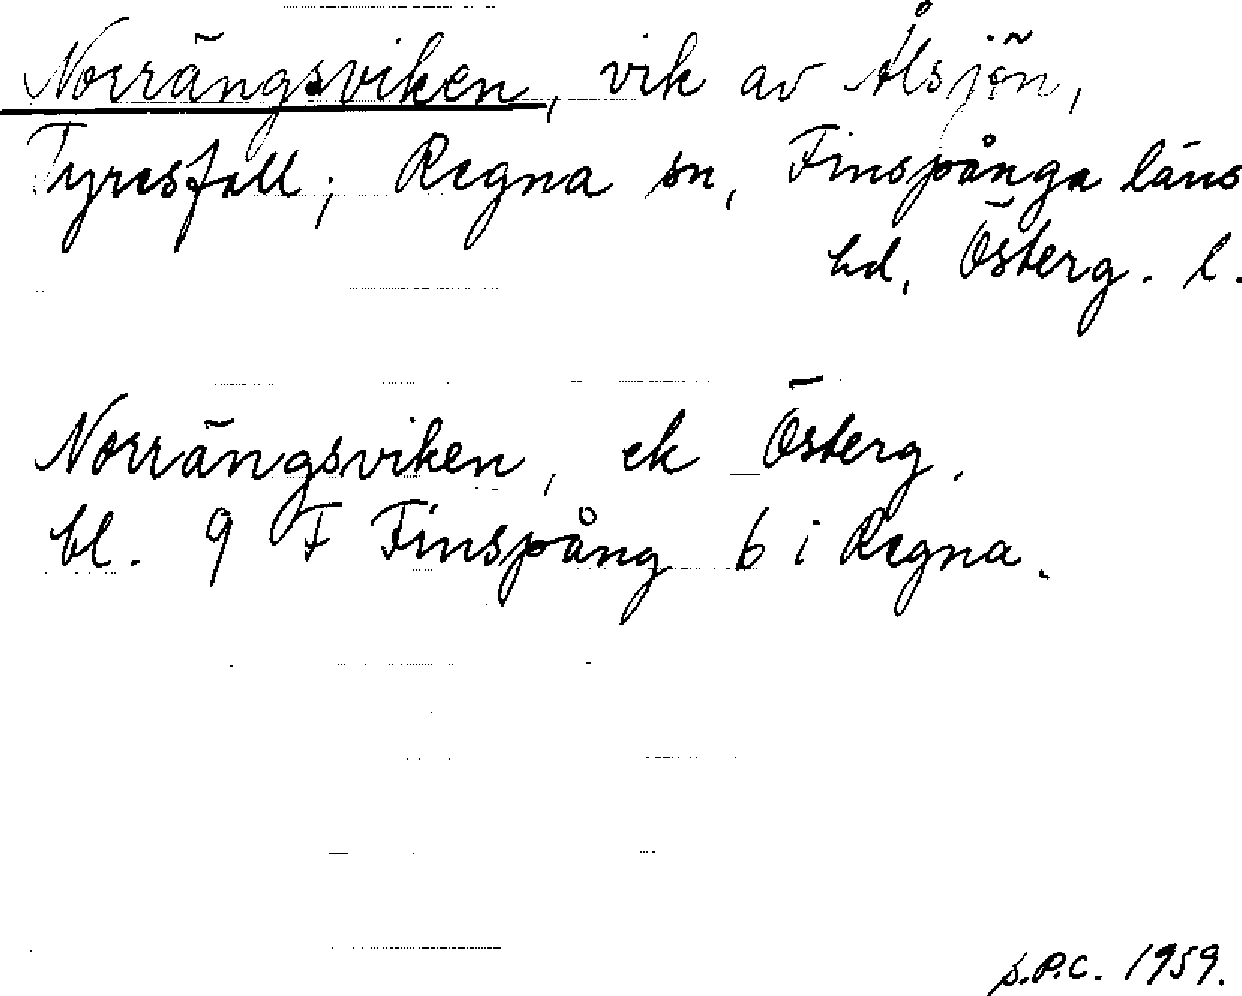 Norrängsviken, vik av Ålsjön,
Tyresfall, Regna sn, Finspånga läns
hd, Österg. l.
Norrängsviken, ek Österg.
bl. 9 F Finspång 6 i Regna.
S.P.C. 1959.